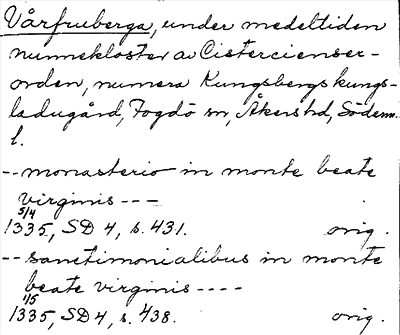 Vårfruberga, under medeltiden
nunnekloster av Cistercienser-
orden, numera Kungsbergs kungs-
ladugård, Fogdö sn, Åkers hd, Södenm.
l.
-- monasterio in monte beate
virginis ---
5/4
1335, SD 4, s. 431. orig.
-- sanctimonialibus in monte
beate virginis ----
1/5
1335, SD 4, s. 438. orig.